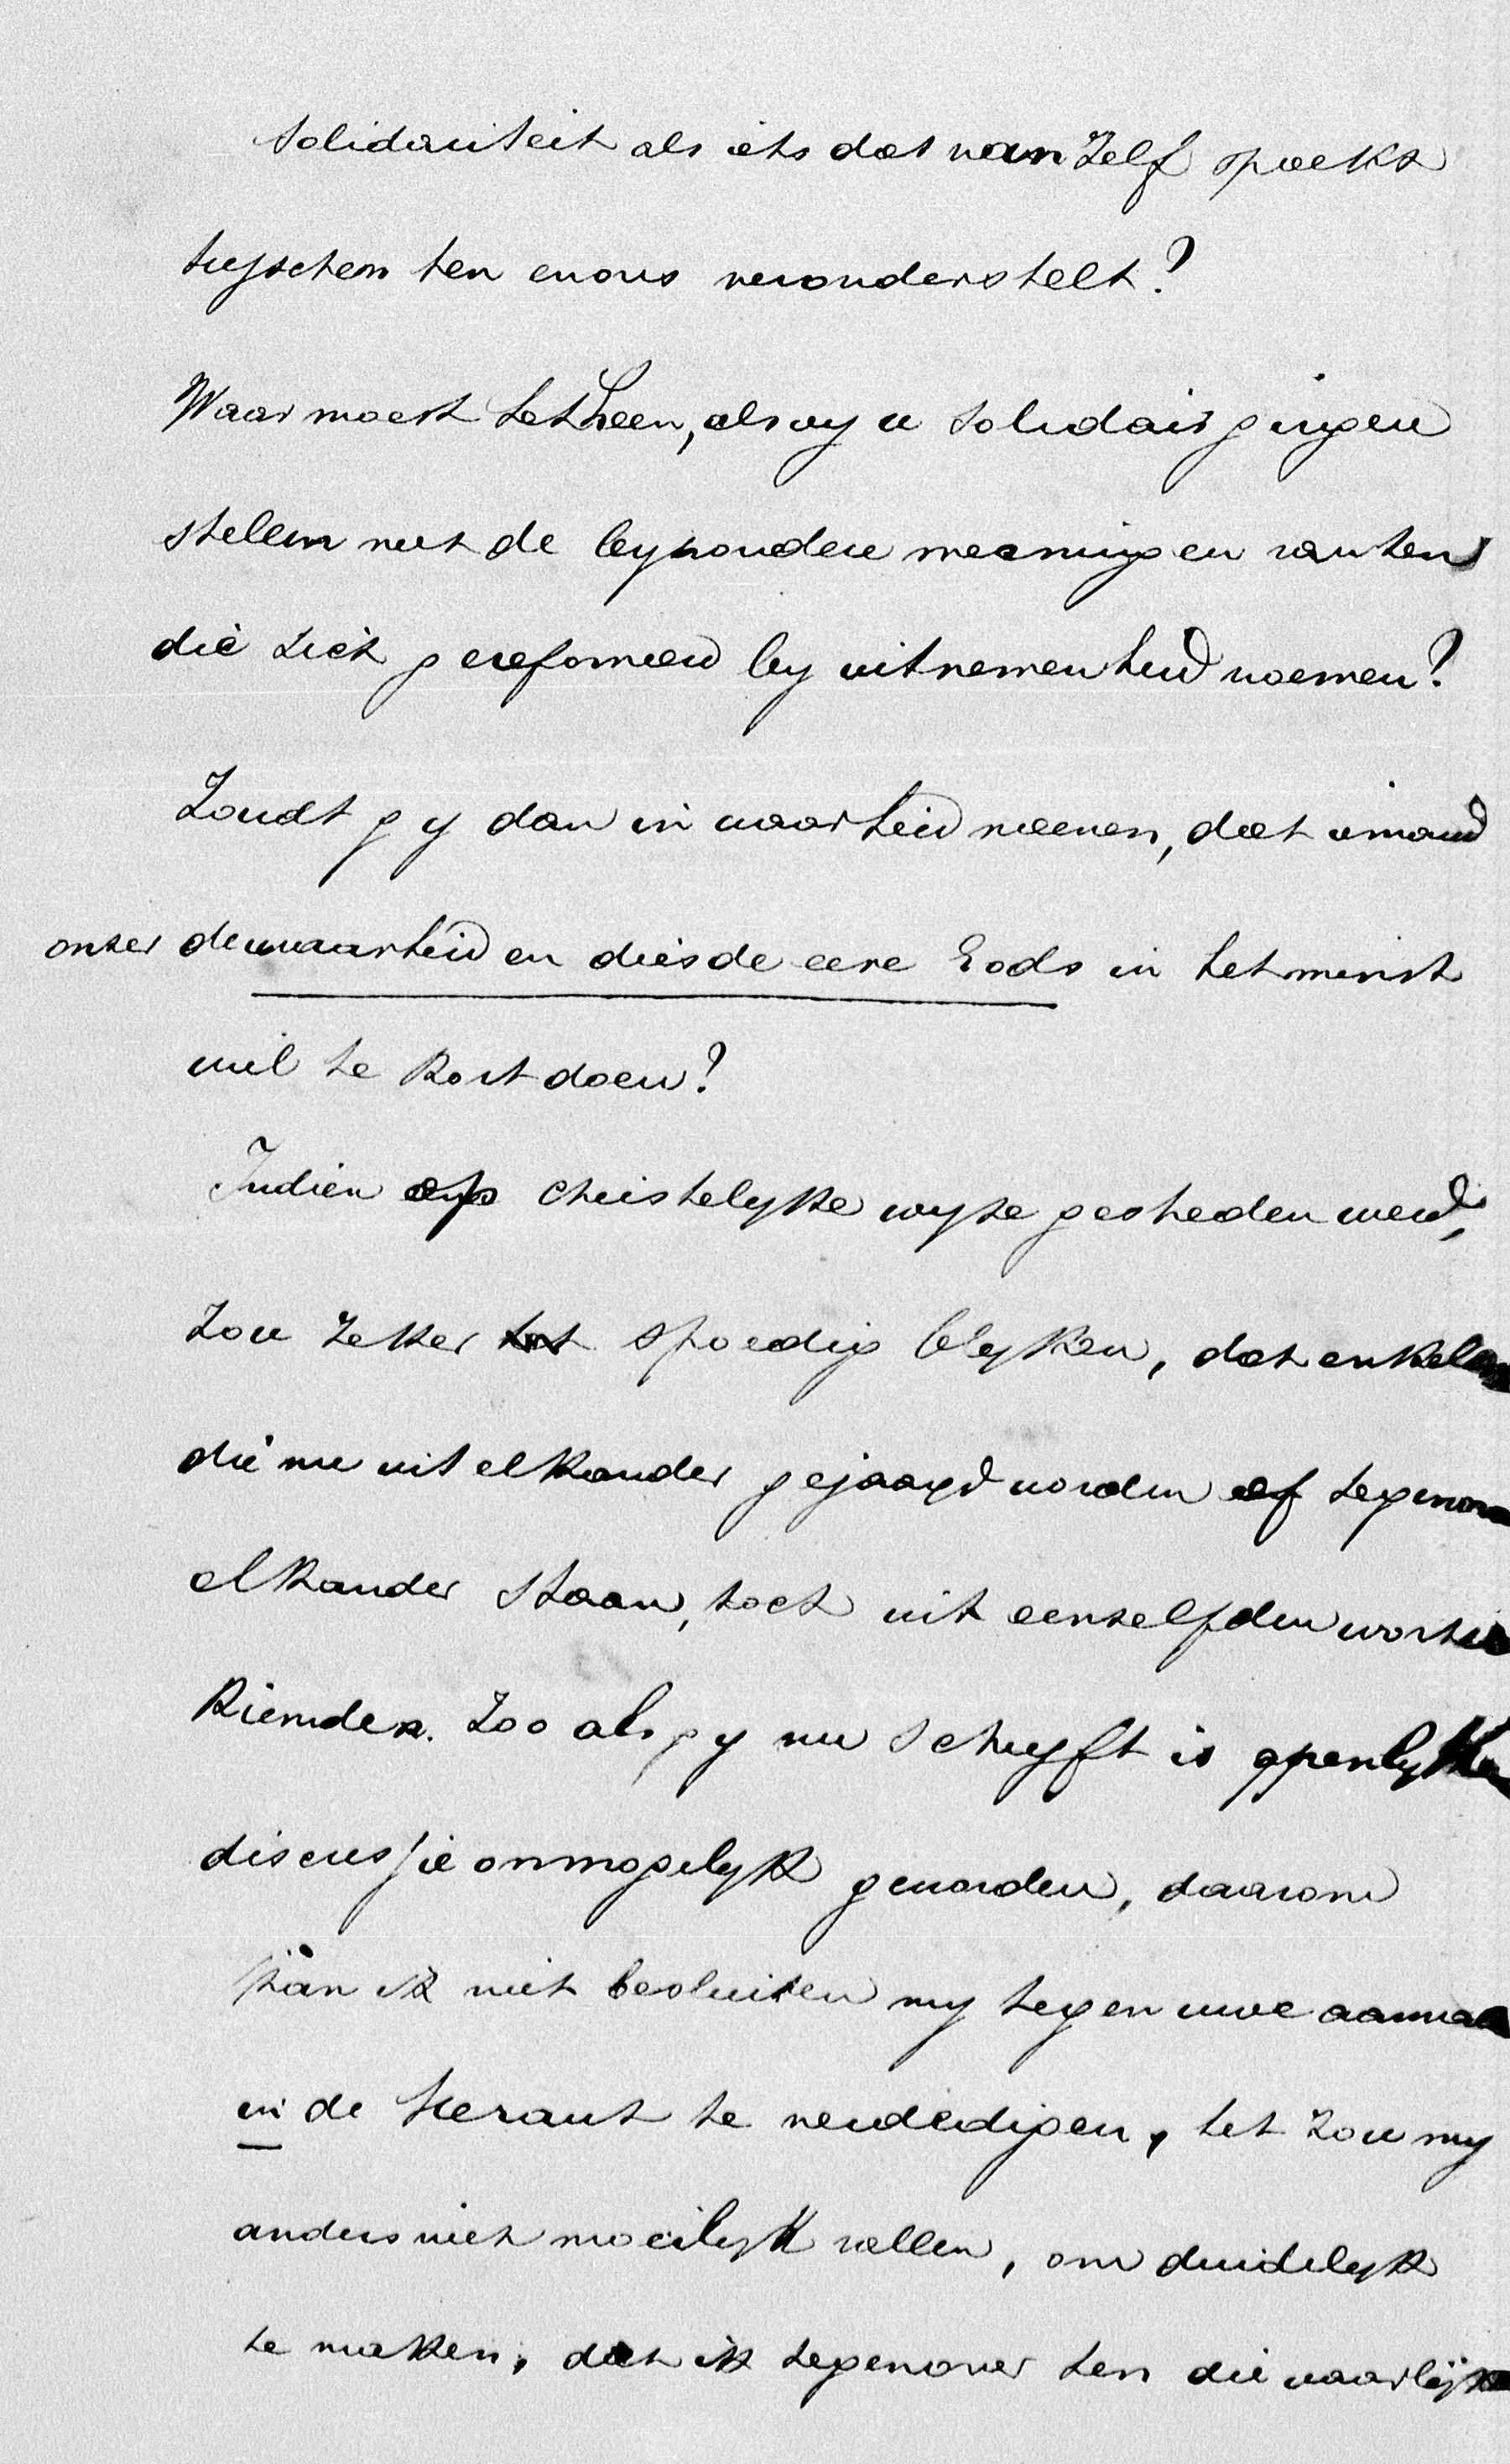 solidariteit als iets dat van zelf spreekt
tusschen hen en ons veronderstelt?
Waar moest het heen, als wy u solidair gingen
stellen met de byzondere meeningen van hen
die zich gereformeerd by uitnemenheid noemen?
Zoudt gy dan in waarheid meenen, dat iemand
onzer de waarheid en dies de eere Gods in het minst
wil te kort doen?
Indien op christelyke wyze gestreden werd,
zou zeker spoedig blyken, dat enkelen
die nu uit elkander gejaagd worden of tegenover
elkander staan, toch uit eenzelfden wortel
kiemden. Zoo als gy nu schryft is openlyke
discussie onmogelyk geworden, daarom
kan ik niet besluiten my tegen uwe aanval
in de Heraut te verdedigen, het zou my
anders niet moeilyk vallen, om duidelyk
te maken, dat ik tegenover hen die waarlijk